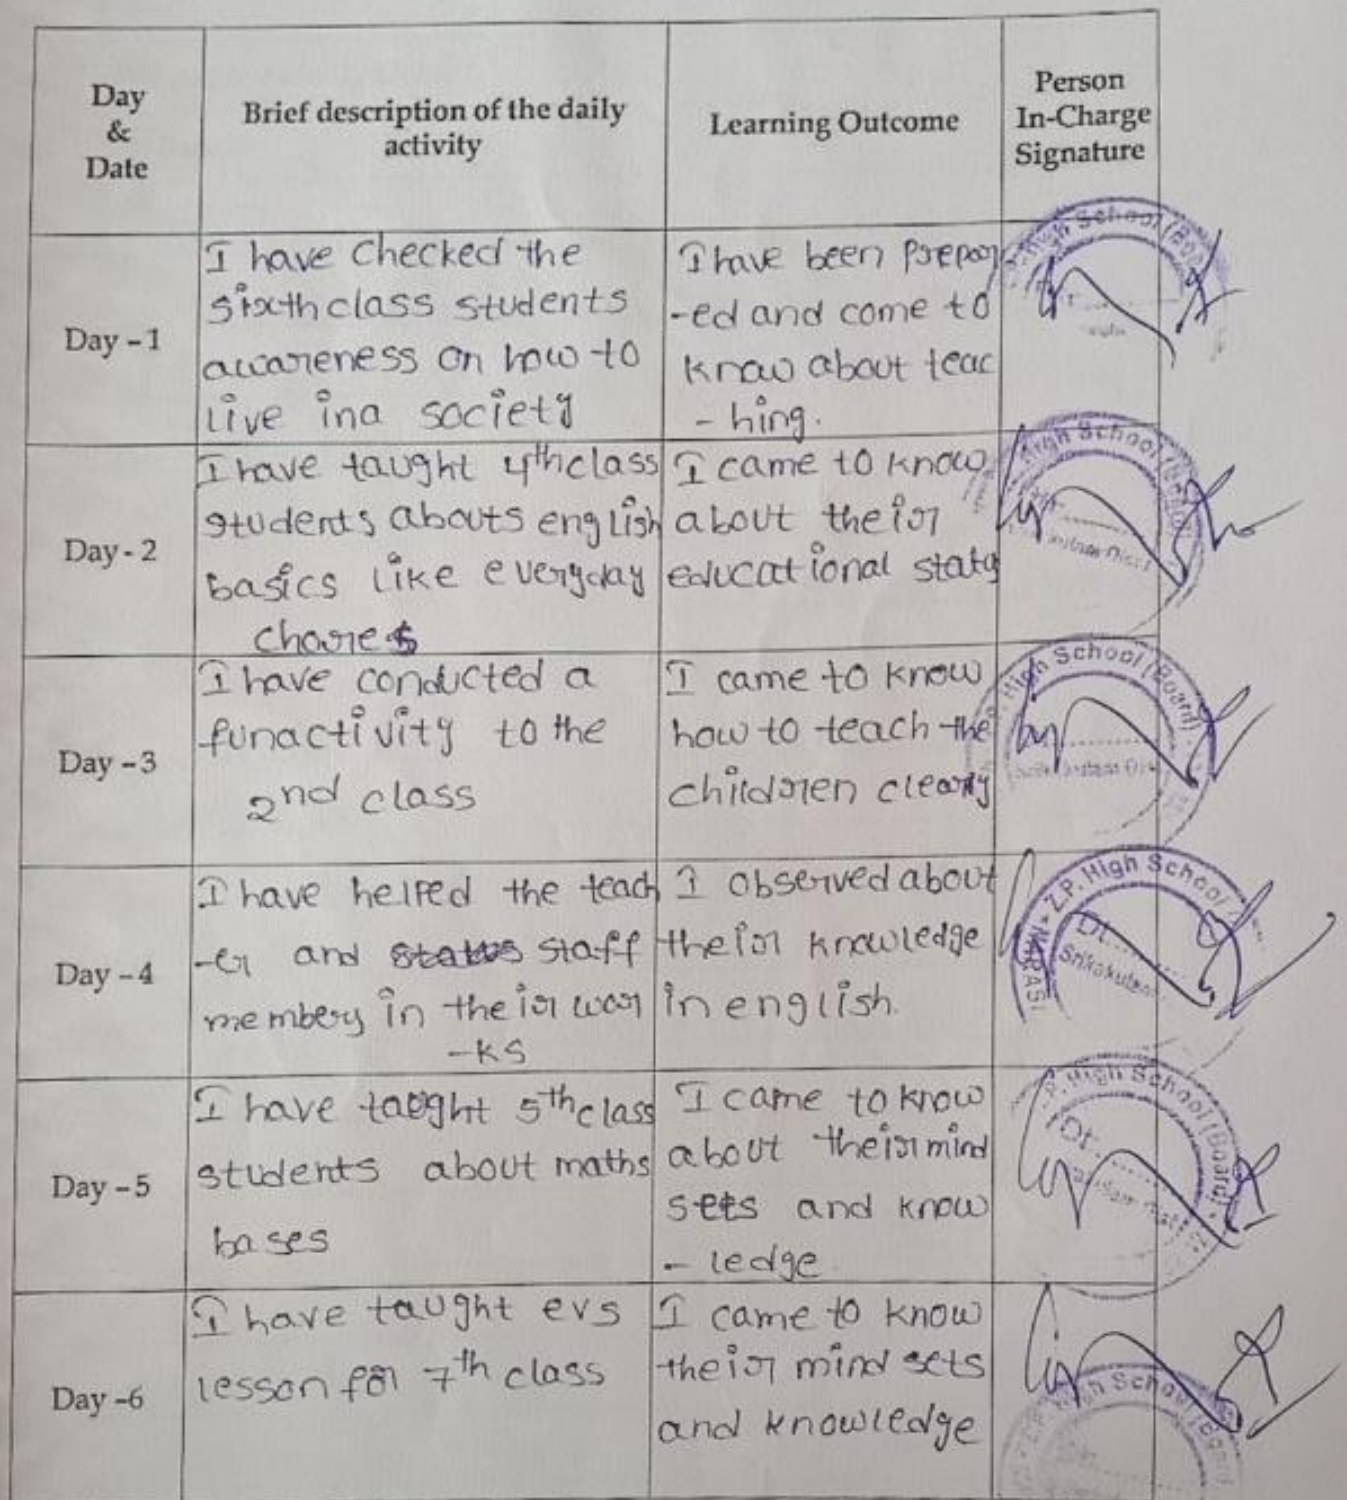 Day
&
Date
Brief description of the daily
activity
Learning Outcome
Person
In-Charge
Signature
Day - 1
I have checked the
sixth class students
awareness on how to
live in a society
I have been prepar
-ed and come to
know about teac
- hing.
High School (Bo
Day - 2
I have taught 4th class
students abouts english
basics like everyday
chores
I came to know
about their
educational
High School (Board
Day - 3
I have conducted a
fun activity to the
2nd class
I came to know
how to teach the
children clearly
High School (Board)
Day - 4
I have helped the teach
-er and status staff
members in their wor
-ks
I observed about
their knowledge
in english.
Z.P. High School
Dt.
Srikakulam
Day - 5
I have taught 5th class
students about maths
bases
I came to know
about their mind
sets and know
- ledge
P. High School (Board)
Dt.
Day -6
I have taught evs
lesson for 7th class
I came to know
their mind sets
and knowledge
Z.P. High School (Board